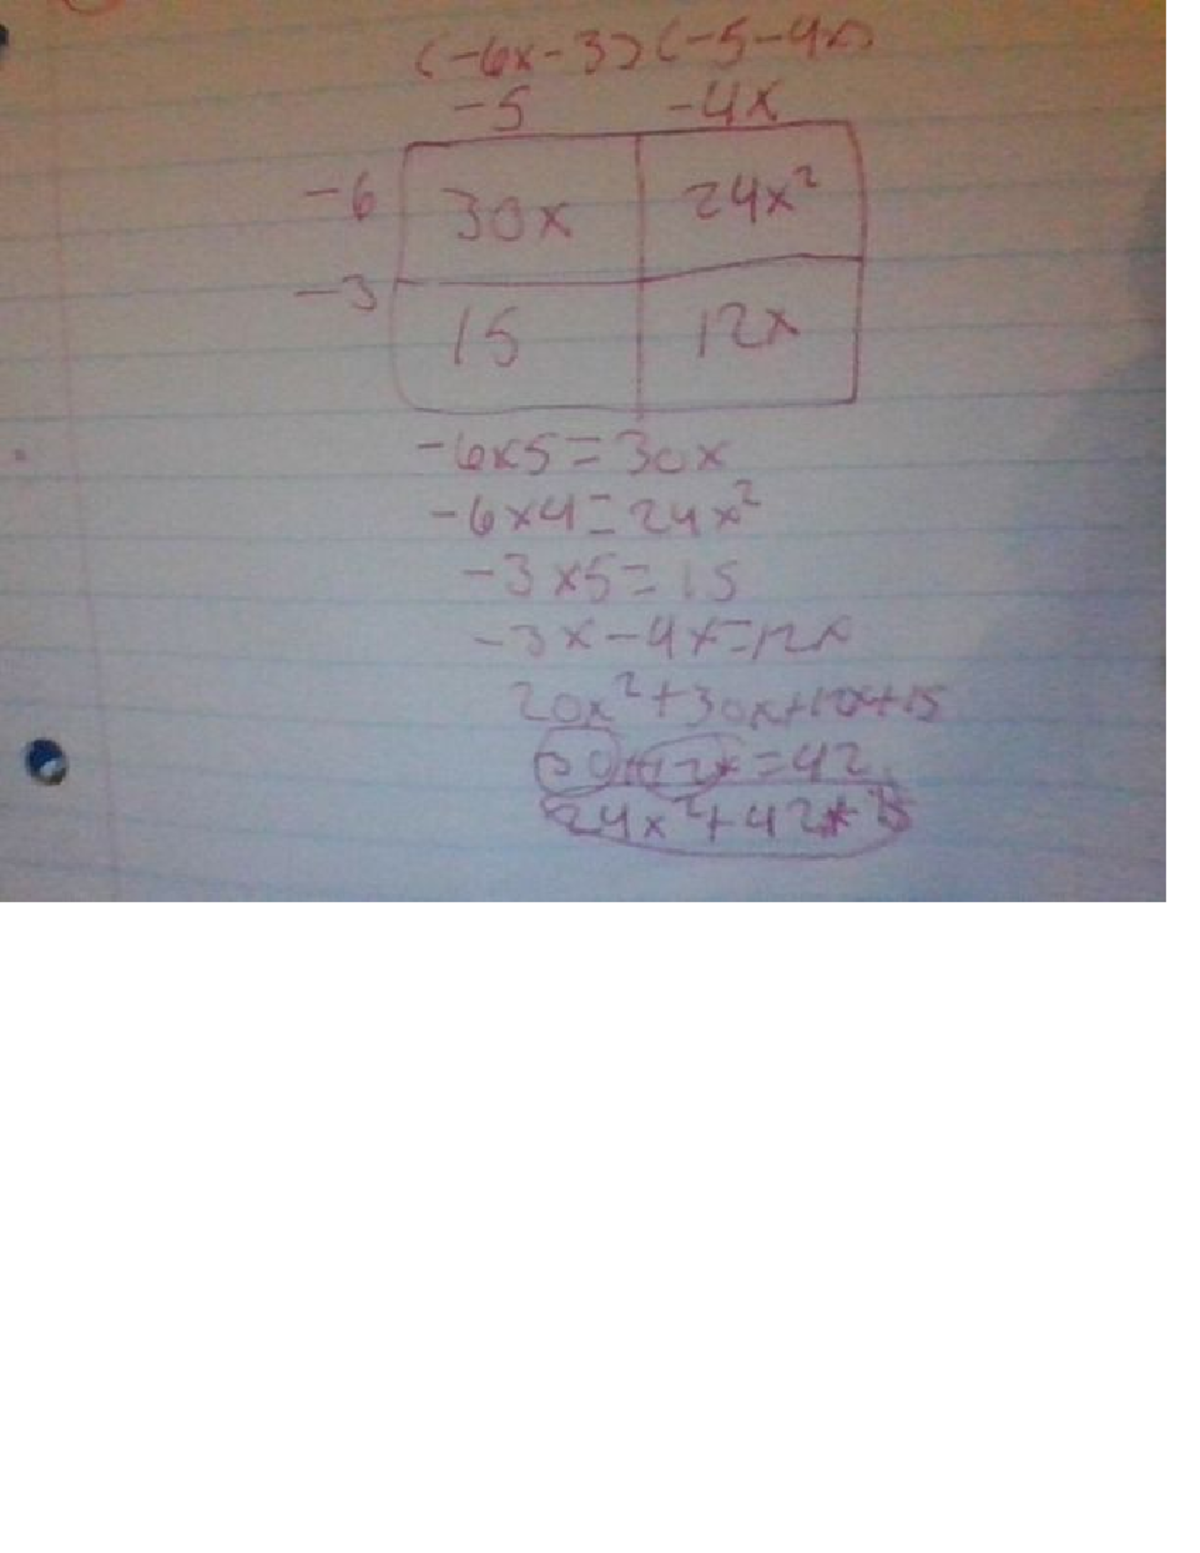 (-6x-3)(-5-4x)
-5 -4x
-6 30x 24x²
-3 15 12x
-6x5=30x
-6x4=24x²
-3x5=15
-3x-4x=12x
20x²+30x+12x+15
30+12x=42
24x²+42x+15